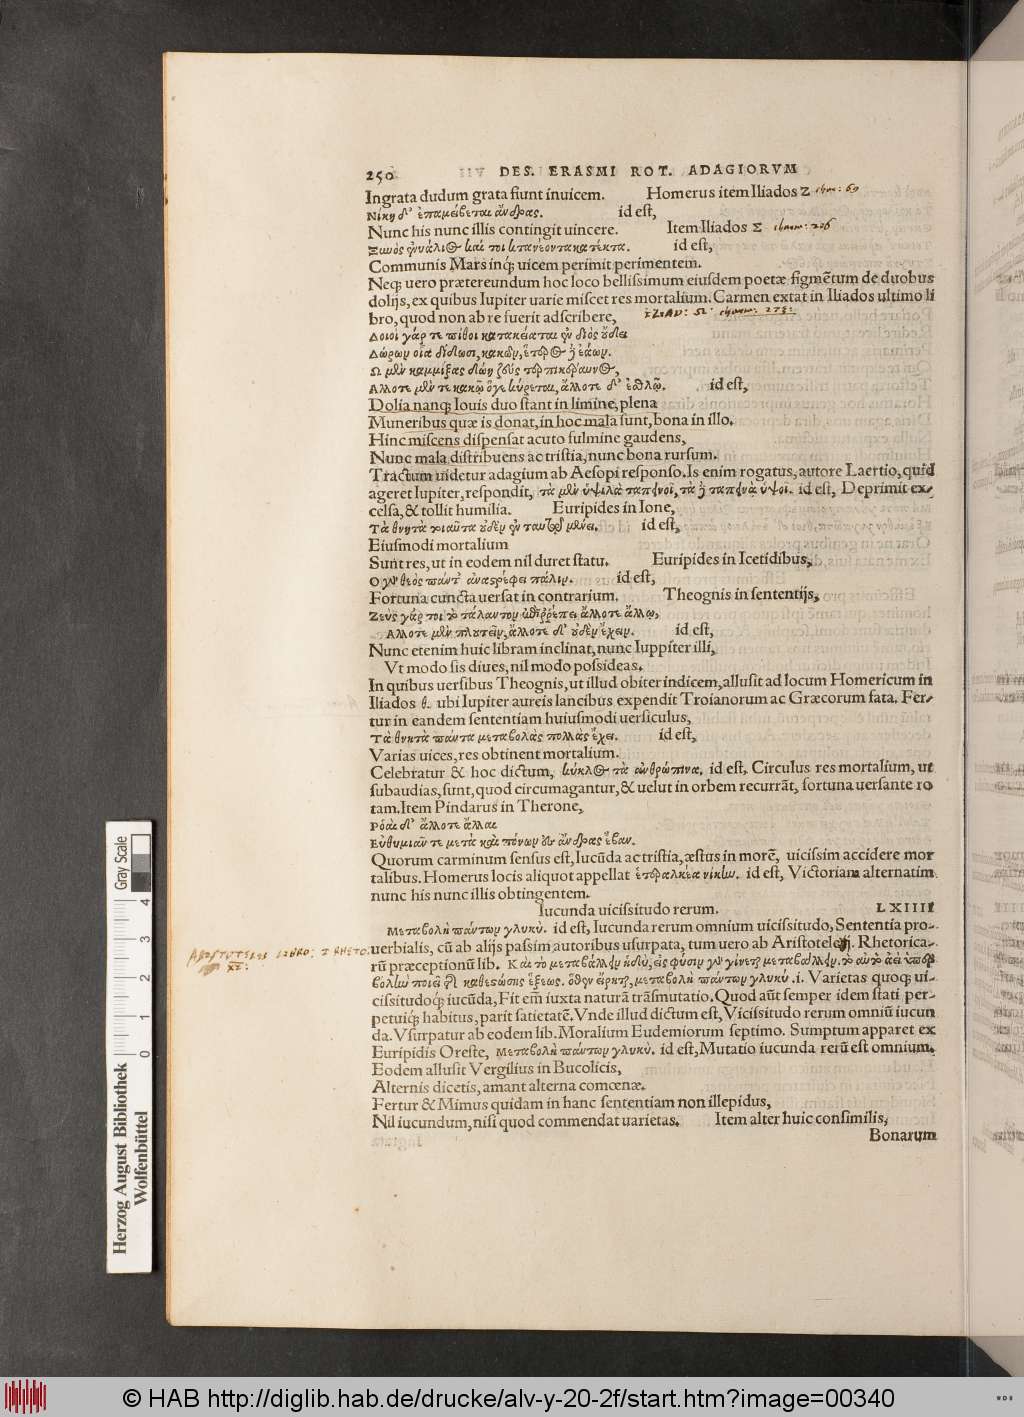 250 DES. ERASMI ROT. ADAGIORVM
Ingrata dudum grata fiunt inuicem. Homerus item Iliados Z
Νίκη δ' ἐπαμείβεται ἄνδρας. id est,
Nunc his nunc illis contingit uincere. Item Iliados Σ
Ξυνὸς ἐνυάλιος καί τοι κτανέοντα κατέκτα. id est,
Communis Mars inq; uicem perimit perimentem.
Neq; uero prætereundum hoc loco bellissimum eiusdem poetæ figmẽtum de duobus
dolijs, ex quibus Iupiter uarie miscet res mortalium. Carmen extat in Iliados ultimo li
bro, quod non ab re fuerit adscribere,
Δοιοὶ γάρ τε πίθοι κατακείαται ἐν διὸς οὔδει
Δώρων οἷα δίδωσι, κακῶν, ἕτερος δὲ ἐάων.
Ω μὲν καμμίξας δώῃ ζεὺς τερπικέραυνος,
Αλλοτε μέν τε κακῷ ὅγε κύρεται, ἄλλοτε δ' ἐσθλῷ. id est,
Dolia nanq; Iouis duo stant in limine, plena
Muneribus quæ is donat, in hoc mala sunt, bona in illo.
Hinc miscens dispensat acuto fulmine gaudens,
Nunc mala distribuens ac tristia, nunc bona rursum.
Tractum uidetur adagium ab Aesopi responso. Is enim rogatus, autore Laertio, quid
ageret Iupiter, respondit, τὰ μὲν ὑψιλὰ ταπεινοῖ, τὰ δὲ ταπεινὰ ὑψοῖ. id est, Deprimit ex-
celsa, & tollit humilia. Euripides in Ione,
Τὰ θνητὰ τοιαῦτα οὐδὲν ἐν ταυτῷ μένει. id est,
Eiusmodi mortalium
Sunt res, ut in eodem nil duret statu. Euripides in Icetidibus,
Ο γὰρ θεὸς πάντ' ἀναστρέφει πάλιν. id est,
Fortuna cuncta uersat in contrarium. Theognis in sententijs,
Ζεὺς γάρ τοι τὸ τάλαντον ἐπιῤῥέπει ἄλλοτε ἄλλῳ,
Αλλοτε μὲν πλουτεῖν, ἄλλοτε δ' οὐδὲν ἔχειν. id est,
Nunc etenim huic libram inclinat, nunc Iuppiter illi,
Vt modo sis diues, nil modo possideas.
In quibus uersibus Theognis, ut illud obiter indicem, allusit ad locum Homericum in
Iliados θ. ubi Iupiter aureis lancibus expendit Troianorum ac Græcorum fata. Fer-
tur in eandem sententiam huiusmodi uersiculus,
Τὰ θνητὰ πάντα μεταβολὰς πολλὰς ἔχει. id est,
Varias uices, res obtinent mortalium.
Celebratur & hoc dictum, κύκλος τὰ ἀνθρώπινα. id est, Circulus res mortalium, ut
subaudias, sunt, quod circumagantur, & uelut in orbem recurrãt, fortuna uersante ro
tam. Item Pindarus in Therone,
Ρόαι δ' ἄλλοτε ἄλλαι
Εὐθυμιᾶν τε μετὰ καὶ πόνων ἐς ἄνδρας ἔβαν.
Quorum carminum sensus est, Iucũda ac tristia, æstus in morẽ, uicissim accidere mor
talibus. Homerus locis aliquot appellat ἑτεραλκέα νίκην. id est, Victoriam alternatim
nunc his nunc illis obtingentem.
Iucunda uicissitudo rerum. LXIIII
Μεταβολὴ πάντων γλυκύ. id est, Iucunda rerum omnium uicissitudo, Sententia pro-
uerbialis, cũ ab alijs passim autoribus usurpata, tum uero ab Aristotele. Rhetorica-
rũ præceptionũ lib. Καὶ τὸ μεταβάλλειν ἡδύ, εἰς φύσιν γὰρ γίνεται μεταβάλλειν. τὸ αὐτὸ ἀεὶ ὑπερ
βολὴν ποιεῖ τῆς καθεσώσης ἕξεως. ὅθεν εἴρηται, μεταβολὴ πάντων γλυκύ. i. Varietas quoq; ui-
cissitudoq; iucũda, Fit em̃ iuxta naturã trãsmutatio. Quod aũt semper idem stati per-
petuiq; habitus, parit satietatẽ. Vnde illud dictum est, Vicissitudo rerum omniũ iucun
da. Vsurpatur ab eodem lib. Moralium Eudemiorum septimo. Sumptum apparet ex
Euripidis Oreste, Μεταβολὴ πάντων γλυκύ. id est, Mutatio iucunda rerũ est omnium.
Eodem allusit Vergilius in Bucolicis,
Alternis dicetis, amant alterna comœnæ.
Fertur & Mimus quidam in hanc sententiam non illepidus,
Nil iucundum, nisi quod commendat uarietas. Item alter huic consimilis,
Bonarum
Gray Scale
4 3 2 1 0
Herzog August Bibliothek
Wolfenbüttel
© HAB http://diglib.hab.de/drucke/alv-y-20-2f/start.htm?image=00340